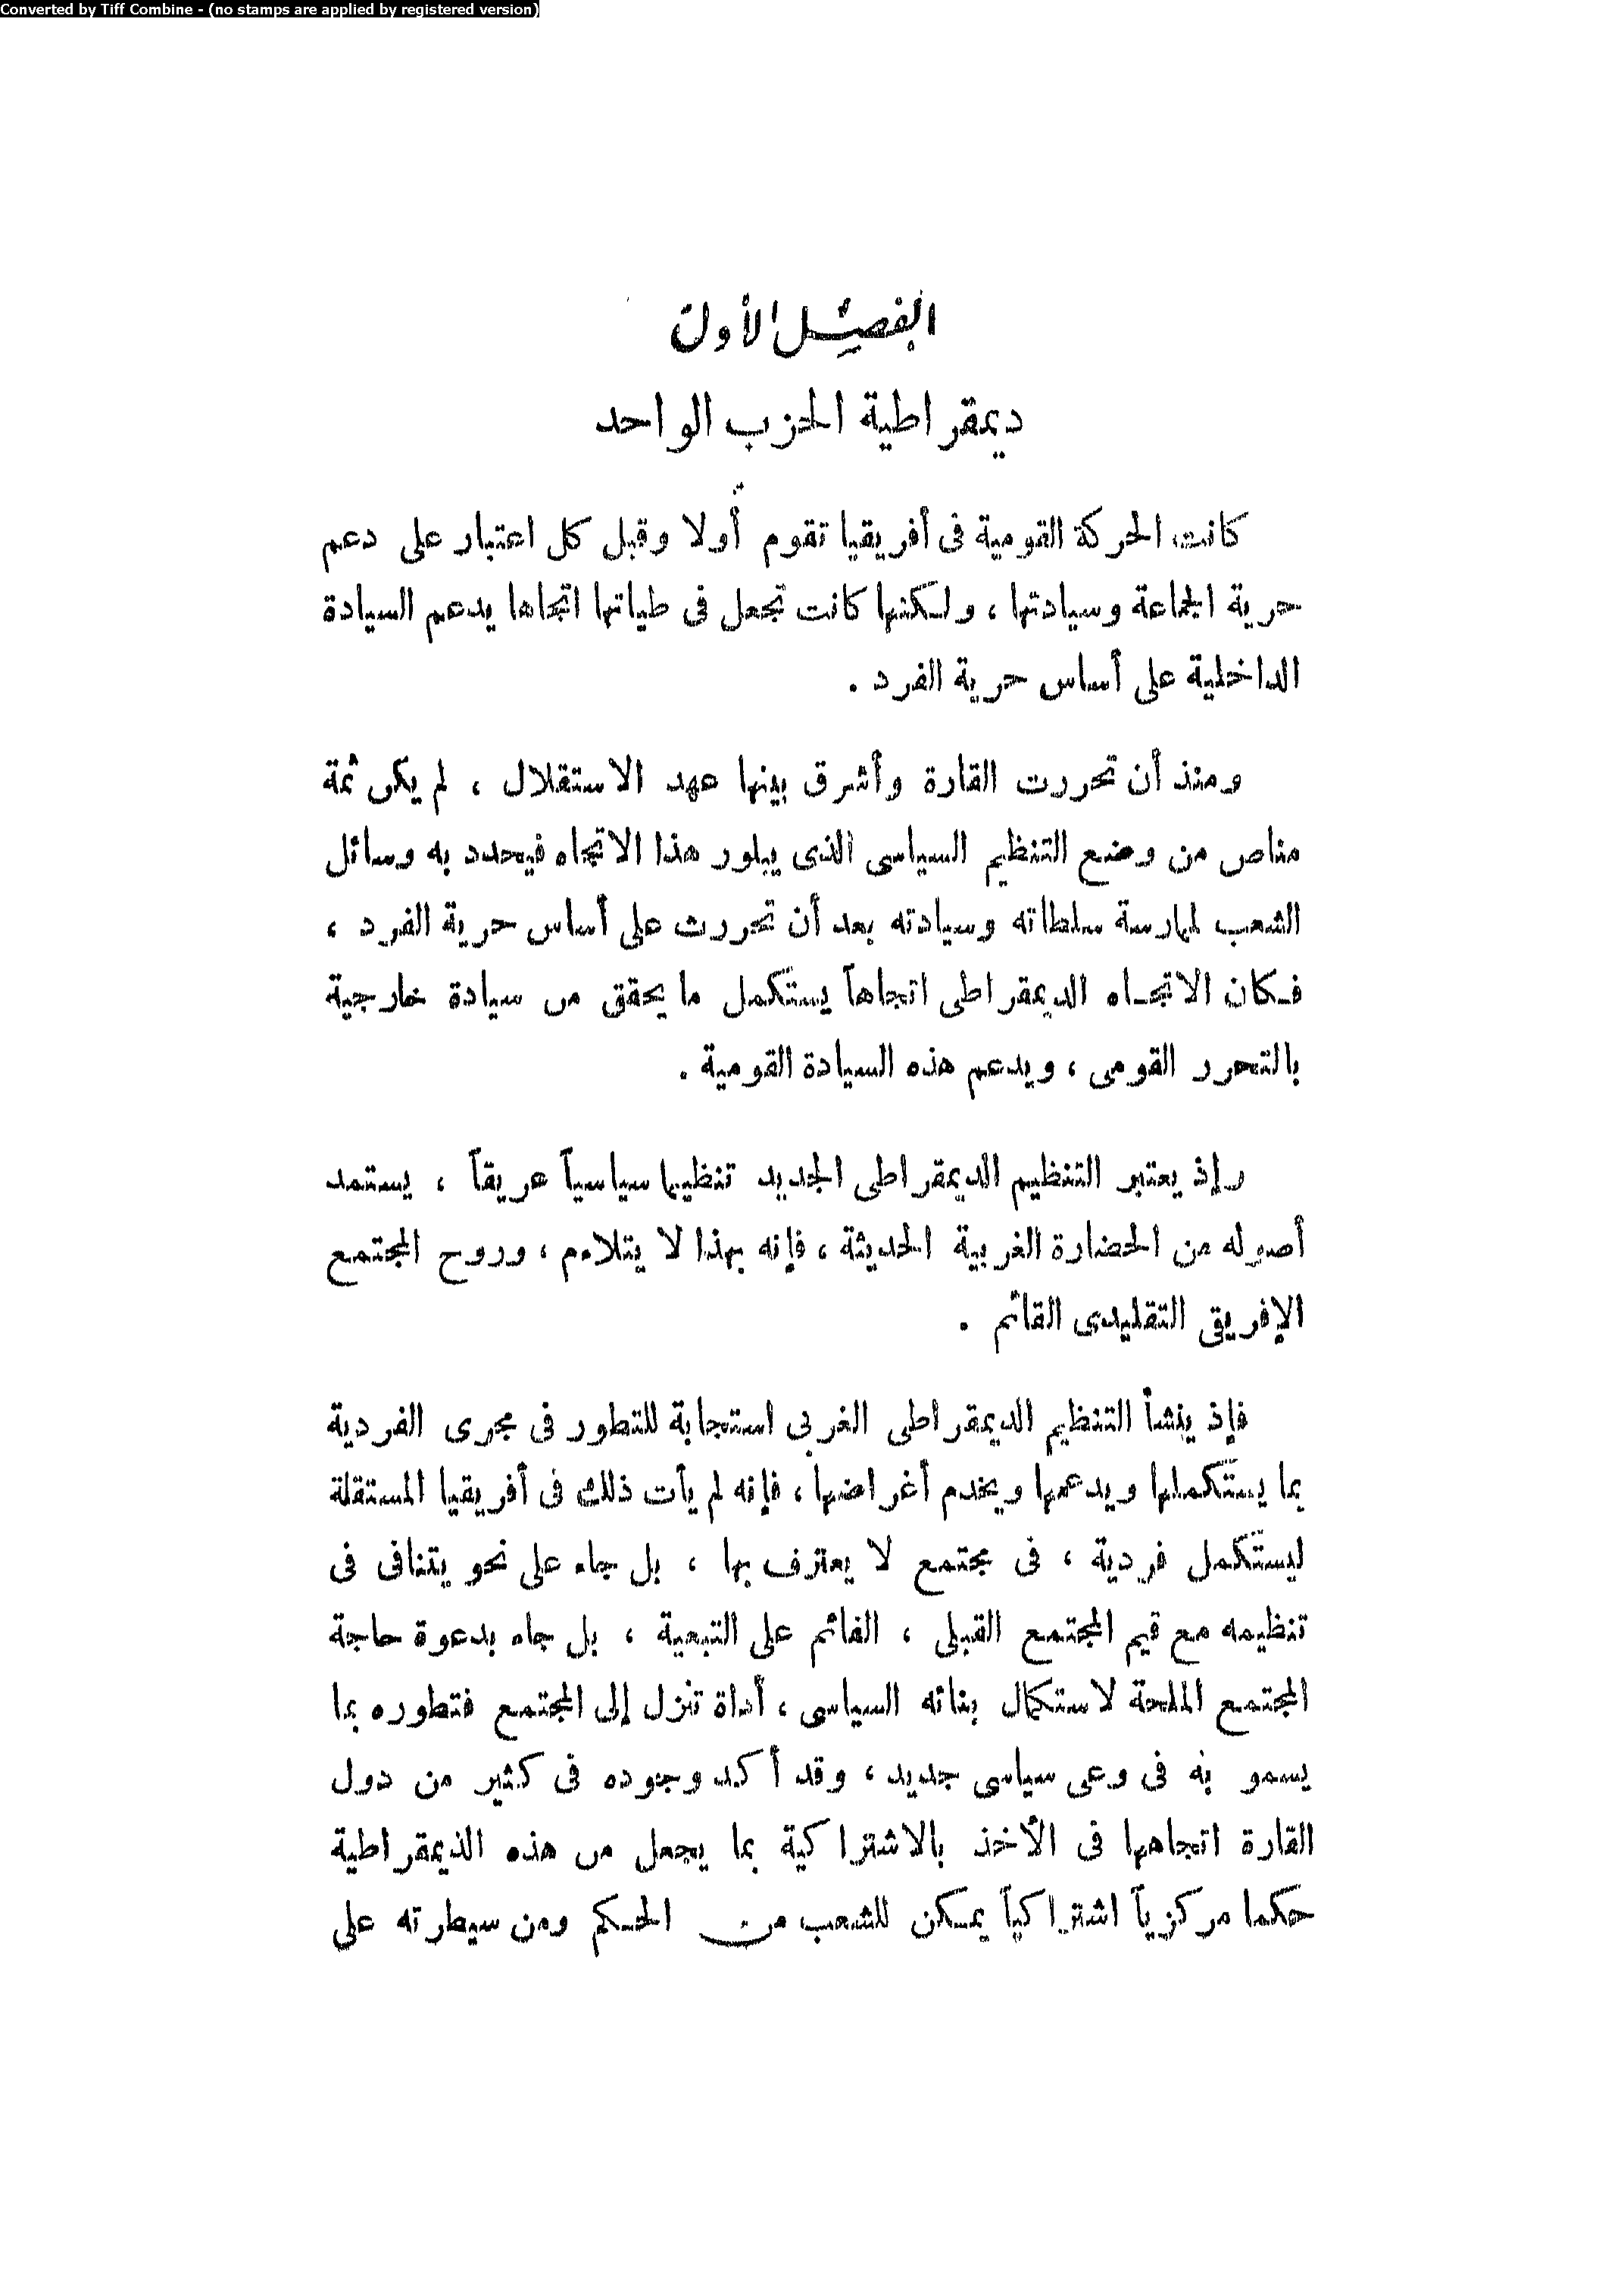 Converted by Tiff Combine - (no stamps are applied by registered version)
الفصل الأول
ديمقراطية الحزب الواحد
كانت الحركة القومية فى أفريقيا تقوم أولا وقبل كل اعتبار على دعم
حرية الجماعة وسيادتها ، ولكنها كانت تجعل فى طياتها اتجاها يدعم السيادة
الداخلية على أساس حرية الفرد .
ومنذ أن تحررت القارة وأشرق بينها عهد الاستقلال ، لم يكن ثمة
مناص من وضع التنظيم السياسى الذى يبلور هذا الاتجاه فيحدد به وسائل
الشعب لممارسة سلطاته وسيادته بعد أن تحررت على أساس حرية الفرد ،
فكان الاتجاه الديمقراطى اتجاهاً يستكمل ما يحقق من سيادة خارجية
بالتحرر القومى ، ويدعم هذه السيادة القومية .
وإذ يعتبر التنظيم الديمقراطى الجديد تنظيما سياسياً عريقاً ، يستمد
أصوله من الحضارة الغربية الحديثة ، فإنه بهذا لا يتلاءم ، وروح المجتمع
الإفريقى التقليدى القائم .
فإذ ينشأ التنظيم الديمقراطى الغربى استجابة للتطور فى مجرى الفردية
بما يستكملها ويدعمها ويخدم أغراضها ، فإنه لم يأت ذلك فى أفريقيا المستقلة
ليستكمل فردية ، فى مجتمع لا يعترف بها ، بل جاء على نحو يتنافى فى
تنظيمه مع قيم المجتمع القبلى ، القائم على التبعية ، بل جاء بدعوة حاجة
المجتمع الملحة لاستكمال بنائه السياسى ، أداة تنزل إلى المجتمع فتطوره بما
يسمو به فى وعى سياسى جديد ، وقد أكد وجوده فى كثير من دول
القارة اتجاهها فى الأخذ بالاشتراكية بما يجعل من هذه الديمقراطية
حكما مركزياً اشتراكياً يمكن للشعب من الحكم ومن سيطرته على